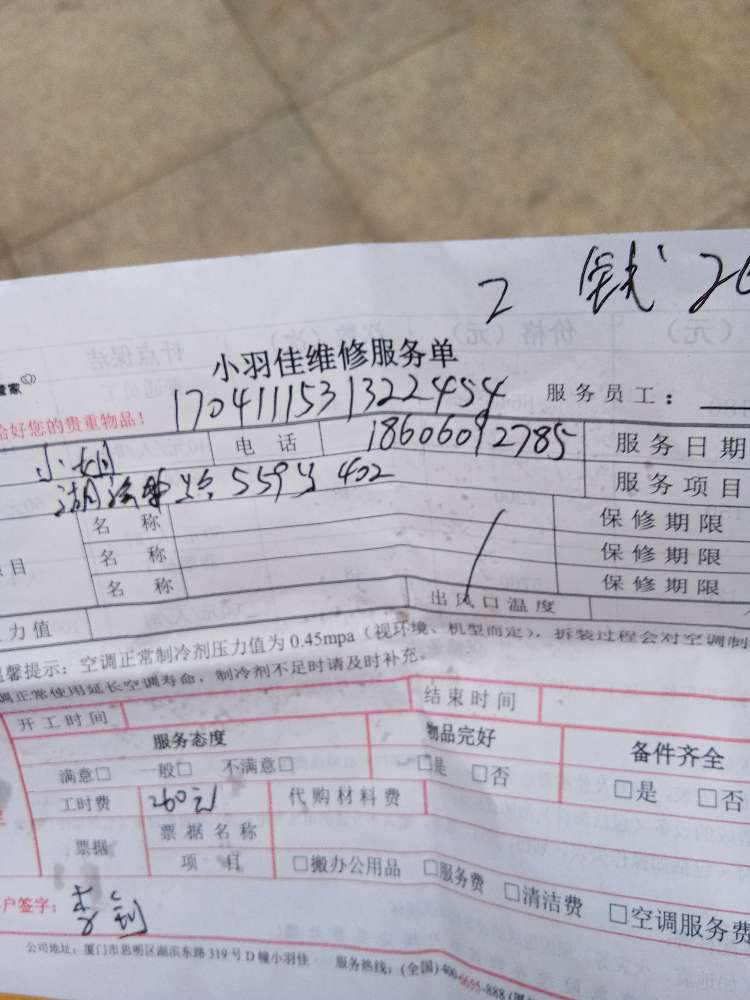 2 钱 26
小羽佳维修服务单
管家
1704111531322454
服务员工：
给好您的贵重物品！
小胡 电话 18606092785 服务日期
559号402 服务项目
名称 保修期限
项目 名称 保修期限
名称 保修期限
压力值 出风口温度
温馨提示：空调正常制冷剂压力值为0.45mpa（视环境、机型而定），拆装过程会对空调制
调正常使用延长空调寿命，制冷剂不足时请及时补充。
开工时间 结束时间
服务态度 物品完好 备件齐全
满意□ 一般□ 不满意□ □是 □否 □是 □否
工时费 260元 代购材料费
票据 票据名称
项目 □搬办公用品 □服务费 □清洁费 □空调服务费
户签字：
公司地址：厦门市思明区湖滨东路319号D幢小羽佳 服务热线：(全国)400-6655-888